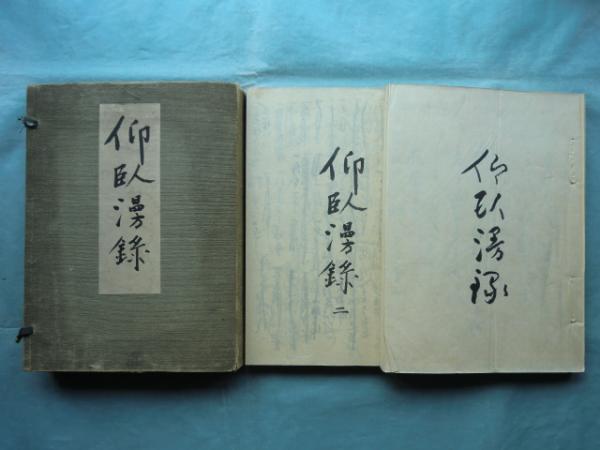 仰臥漫錄
仰臥漫錄 二
仰臥漫録